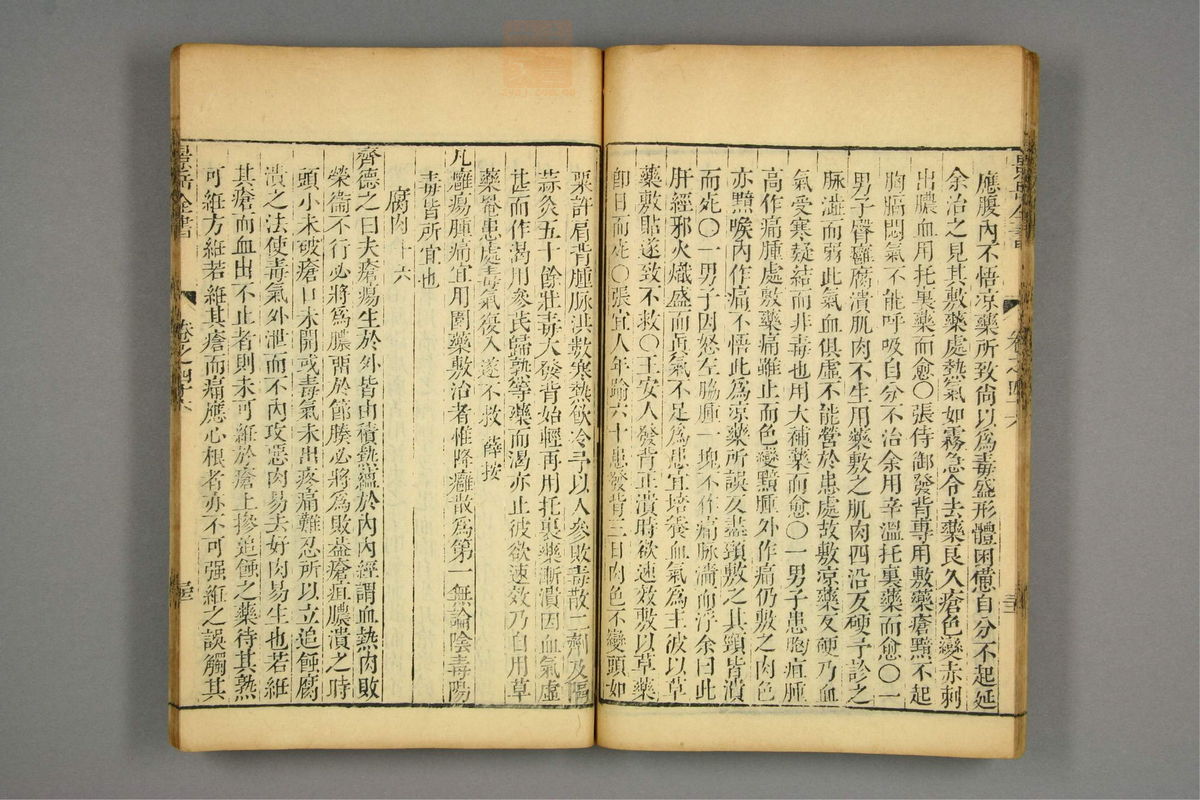 應腹內不悟凉藥所致尙以爲毒盛形體困憊自分不起延
余治之見其敷藥處熱氣如霧急令去藥良久瘡色變赤刺
出膿血用托裏藥而愈〇張侍御發背專用敷藥瘡黯不起
胸膈悶氣不能呼吸自分不治余用辛溫托裏藥而愈〇一
男子臀癰腐潰肌肉不生用藥敷之肌肉四沿反硬予診之
脉濇而弱此氣血俱虛不能營於患處故敷凉藥反硬乃血
氣受寒凝結而非毒也用大補藥而愈〇一男子患胸疽腫
高作痛腫處敷藥痛雖止而色變黯腫外作痛仍敷之肉色
亦黯喉內作痛不悟此爲凉藥所誤反盡頸敷之其頸皆潰
而死〇一男子因怒左脇腫一塊不作痛脉濇而浮余曰此
肝經邪火熾盛而眞氣不足爲患宜培養血氣爲主彼以草
藥敷貼遂致不救〇王安人發背正潰時欲速效敷以草藥
卽日而死〇張宜人年踰六十患發背三日肉色不變頭如
粟許肩背腫脉洪數寒熱飲冷予以人參敗毒散二劑及隔
蒜灸五十餘壯毒大發背始輕再用托裏藥漸潰因血氣虛
甚而作渴用參芪歸熟等藥而渴亦止彼欲速效乃自用草
藥罨患處毒氣復入遂不救 薛按
凡癰瘍腫痛宜用圍藥敷治者惟降癰散爲第一無論陰毒陽
毒皆所宜也
腐肉 十六
齊德之曰夫瘡瘍生於外皆由積熱蘊於內內經謂血熱肉敗
榮衞不行必將爲膿留於節腠必將爲敗蓋瘡疽膿潰之時
頭小未破瘡口未開或毒氣未出疼痛難忍所以立追蝕腐
潰之法使毒氣外泄而不內攻惡肉易去好肉易生也若絍
其瘡而血出不止者則未可絍於瘡上摻追蝕之藥待其熟
可絍方絍若絍其瘡而痛應心根者亦不可强絍之誤觸其
景岳全書
卷之四十六
三